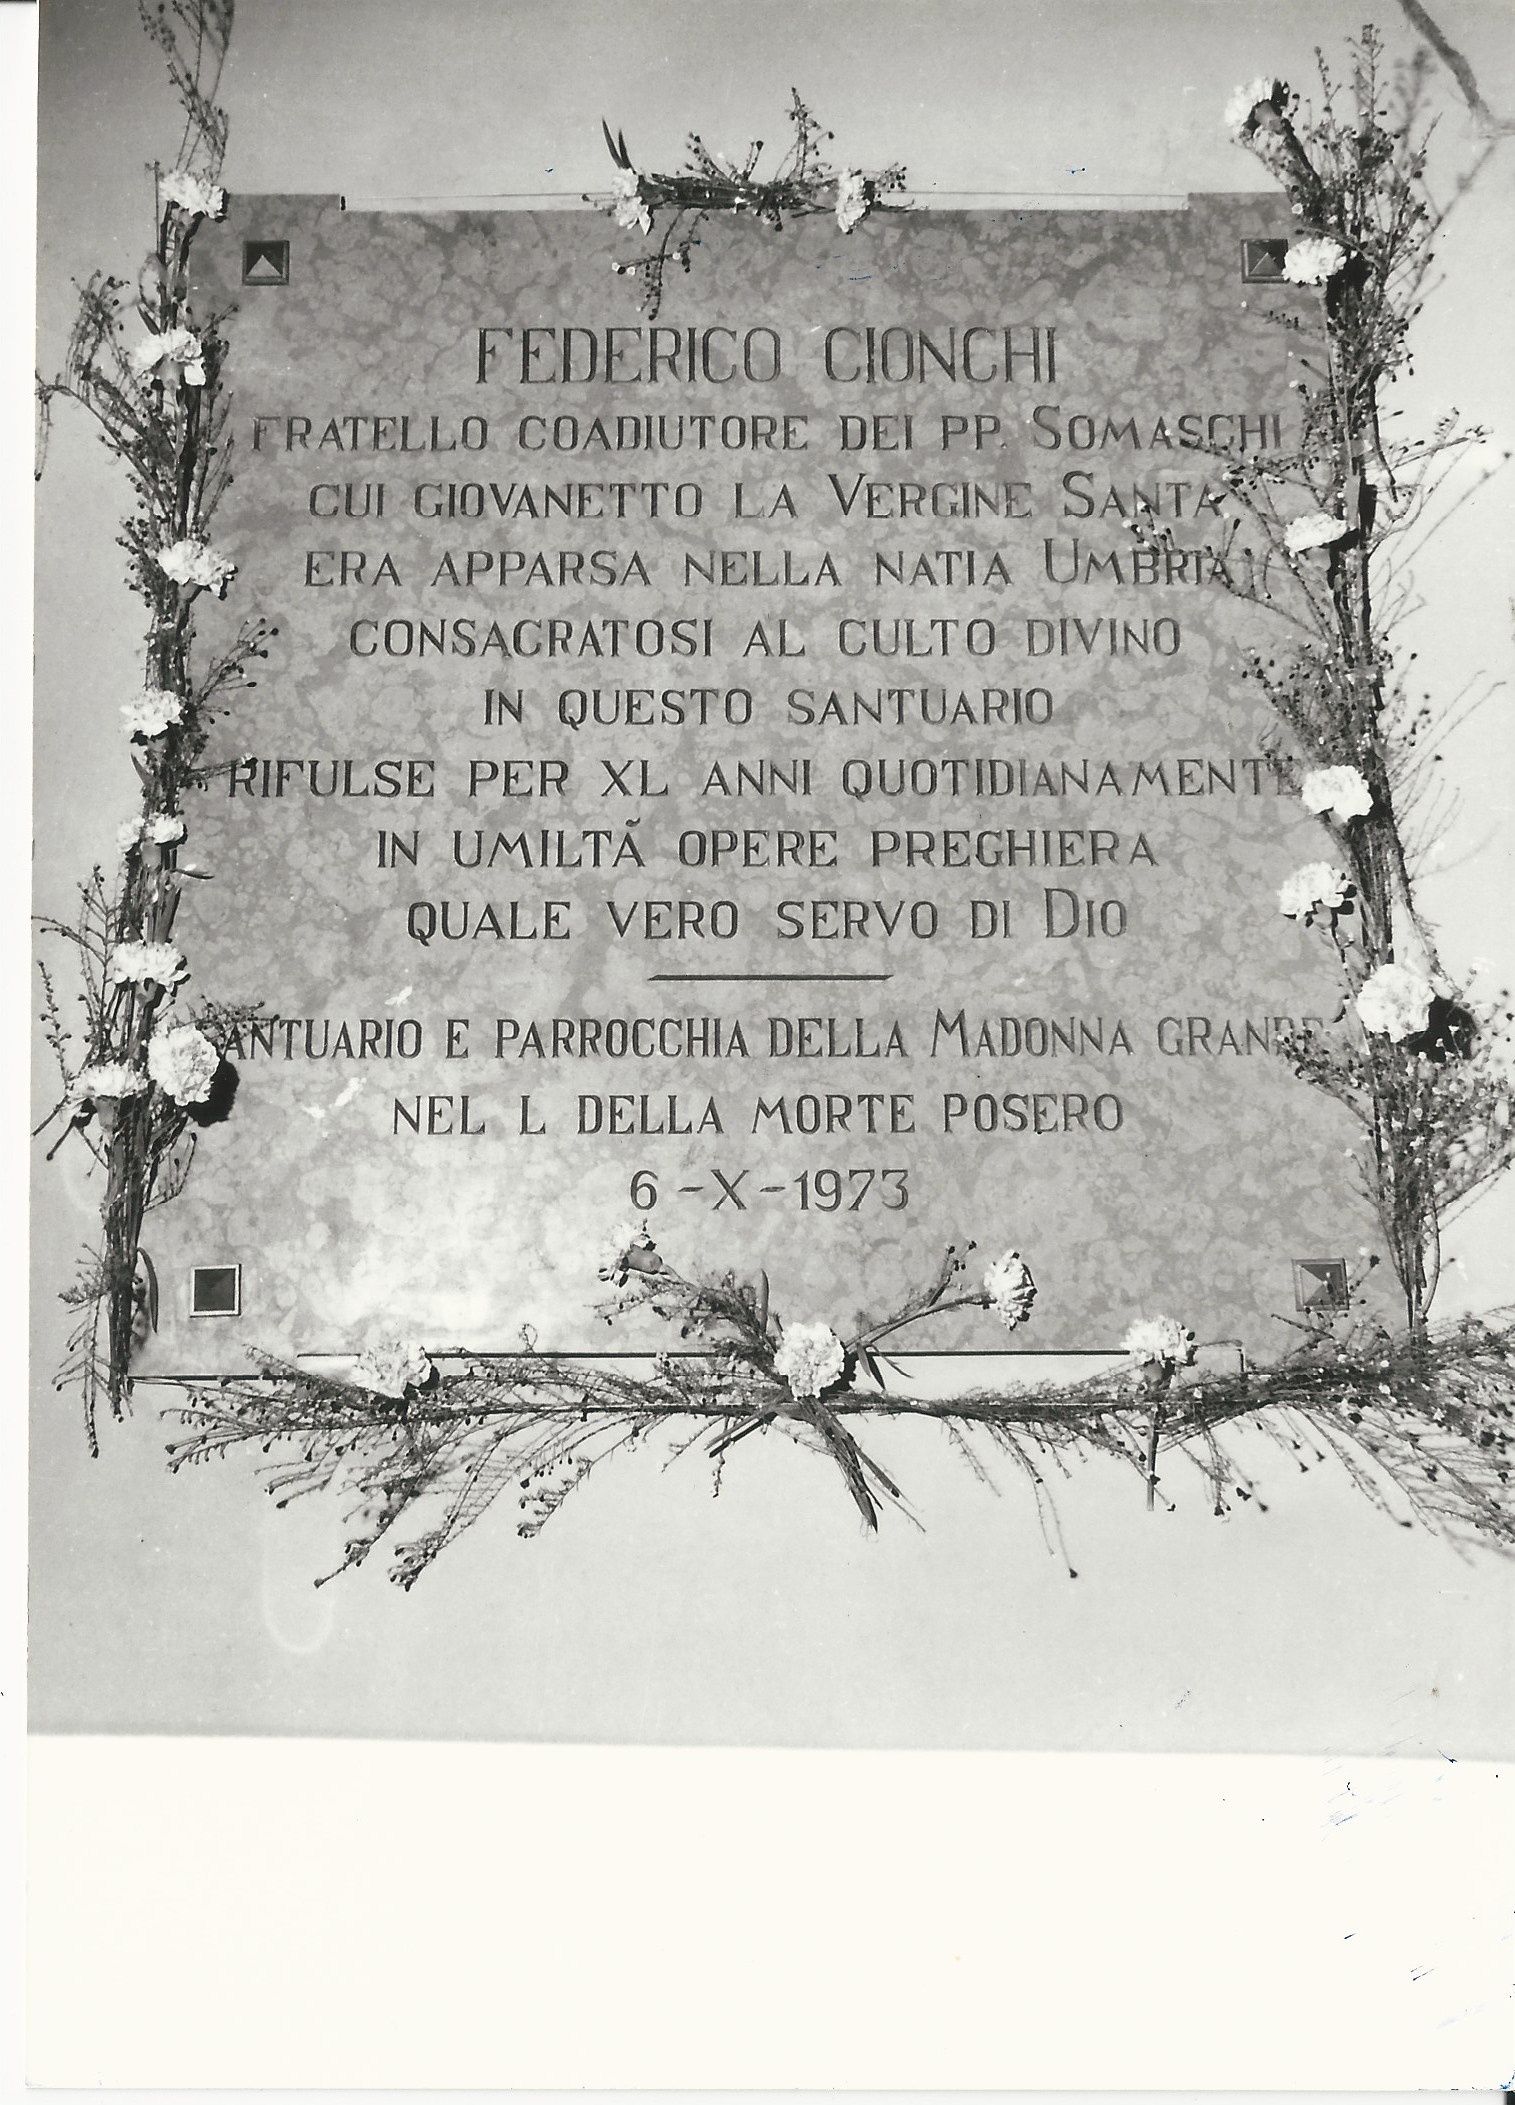 FEDERICO CIONCHI
FRATELLO COADIUTORE DEI PP. SOMASCHI
CUI GIOVANETTO LA VERGINE SANTA
ERA APPARSA NELLA NATIA UMBRIA
CONSACRATOSI AL CULTO DIVINO
IN QUESTO SANTUARIO
RIFULSE PER XL ANNI QUOTIDIANAMENTE
IN UMILTÃ OPERE PREGHIERA
QUALE VERO SERVO DI DIO
SANTUARIO E PARROCCHIA DELLA MADONNA GRANDE
NEL L DELLA MORTE POSERO
6-X-1973